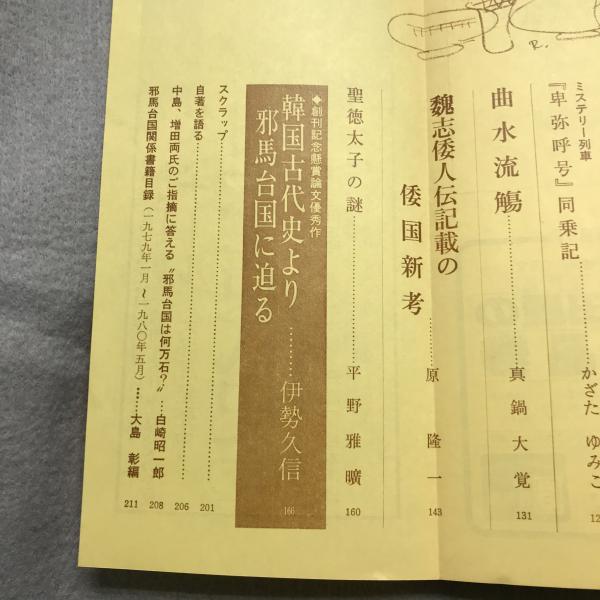 R.
ミステリー列車
『卑弥呼号』同乗記
かざた ゆみこ
12
曲水流觴
真鍋大覚
131
魏志倭人伝記載の
倭国新考
原隆一
143
聖徳太子の謎
平野雅曠
160
◆創刊記念懸賞論文優秀作
韓国古代史より
邪馬台国に迫る
伊勢久信
166
スクラップ
201
自著を語る
206
中島、増田両氏のご指摘に答える〝邪馬台国は何万石?〟…白崎昭一郎
208
邪馬台国関係書籍目録(一九七九年一月〜一九八〇年五月)……大島 彰編
211